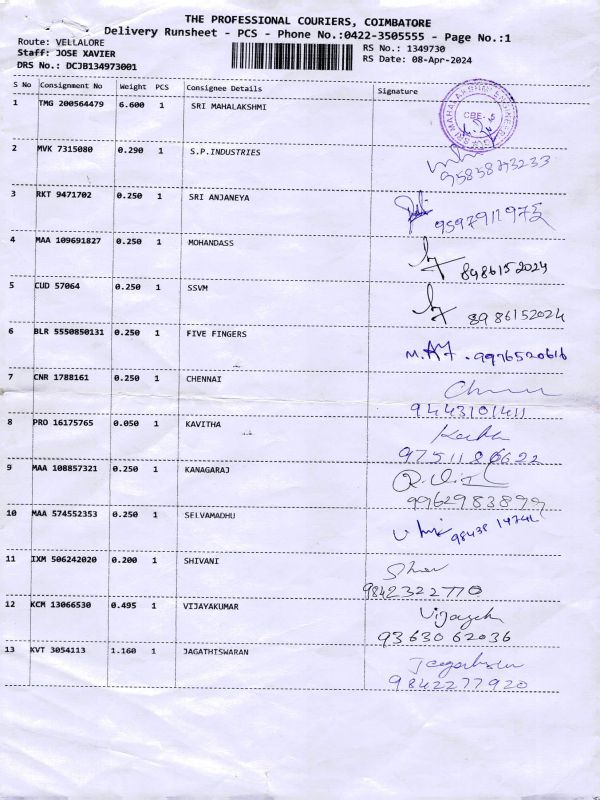 THE PROFESSIONAL COURIERS, COIMBATORE
Delivery Runsheet - PCS - Phone No.:0422-3505555 - Page No.:1
Route: VELLALORE
RS No.: 1349730
Staff: JOSE XAVIER
RS Date: 08-Apr-2024
DRS No.: DCJB134973001
S No Consignment No Weight PCS Consignee Details Signature
1 TMG 200564479 6.600 1 SRI MAHALAKSHMI
CBE-
2 MVK 7315080 0.290 1 S.P.INDUSTRIES
3 RKT 9471702 0.250 1 SRI ANJANEYA
4 MAA 109691827 0.250 1 MOHANDASS
8986152024
5 CUD 57064 0.250 1 SSVM
8986152024
6 BLR 5550850131 0.250 1 FIVE FINGERS
9976520616
7 CNR 1788161 0.250 1 CHENNAI
9443101411
8 PRO 16175765 0.050 1 KAVITHA
9751186622
9 MAA 108857321 0.250 1 KANAGARAJ
10 MAA 574552353 0.250 1 SELVAMADHU
11 IXM 506242020 0.200 1 SHIVANI
9842322770
12 KCM 13066530 0.495 1 VIJAYAKUMAR
9363062036
13 KVT 3054113 1.160 1 JAGATHISWARAN
9842277920